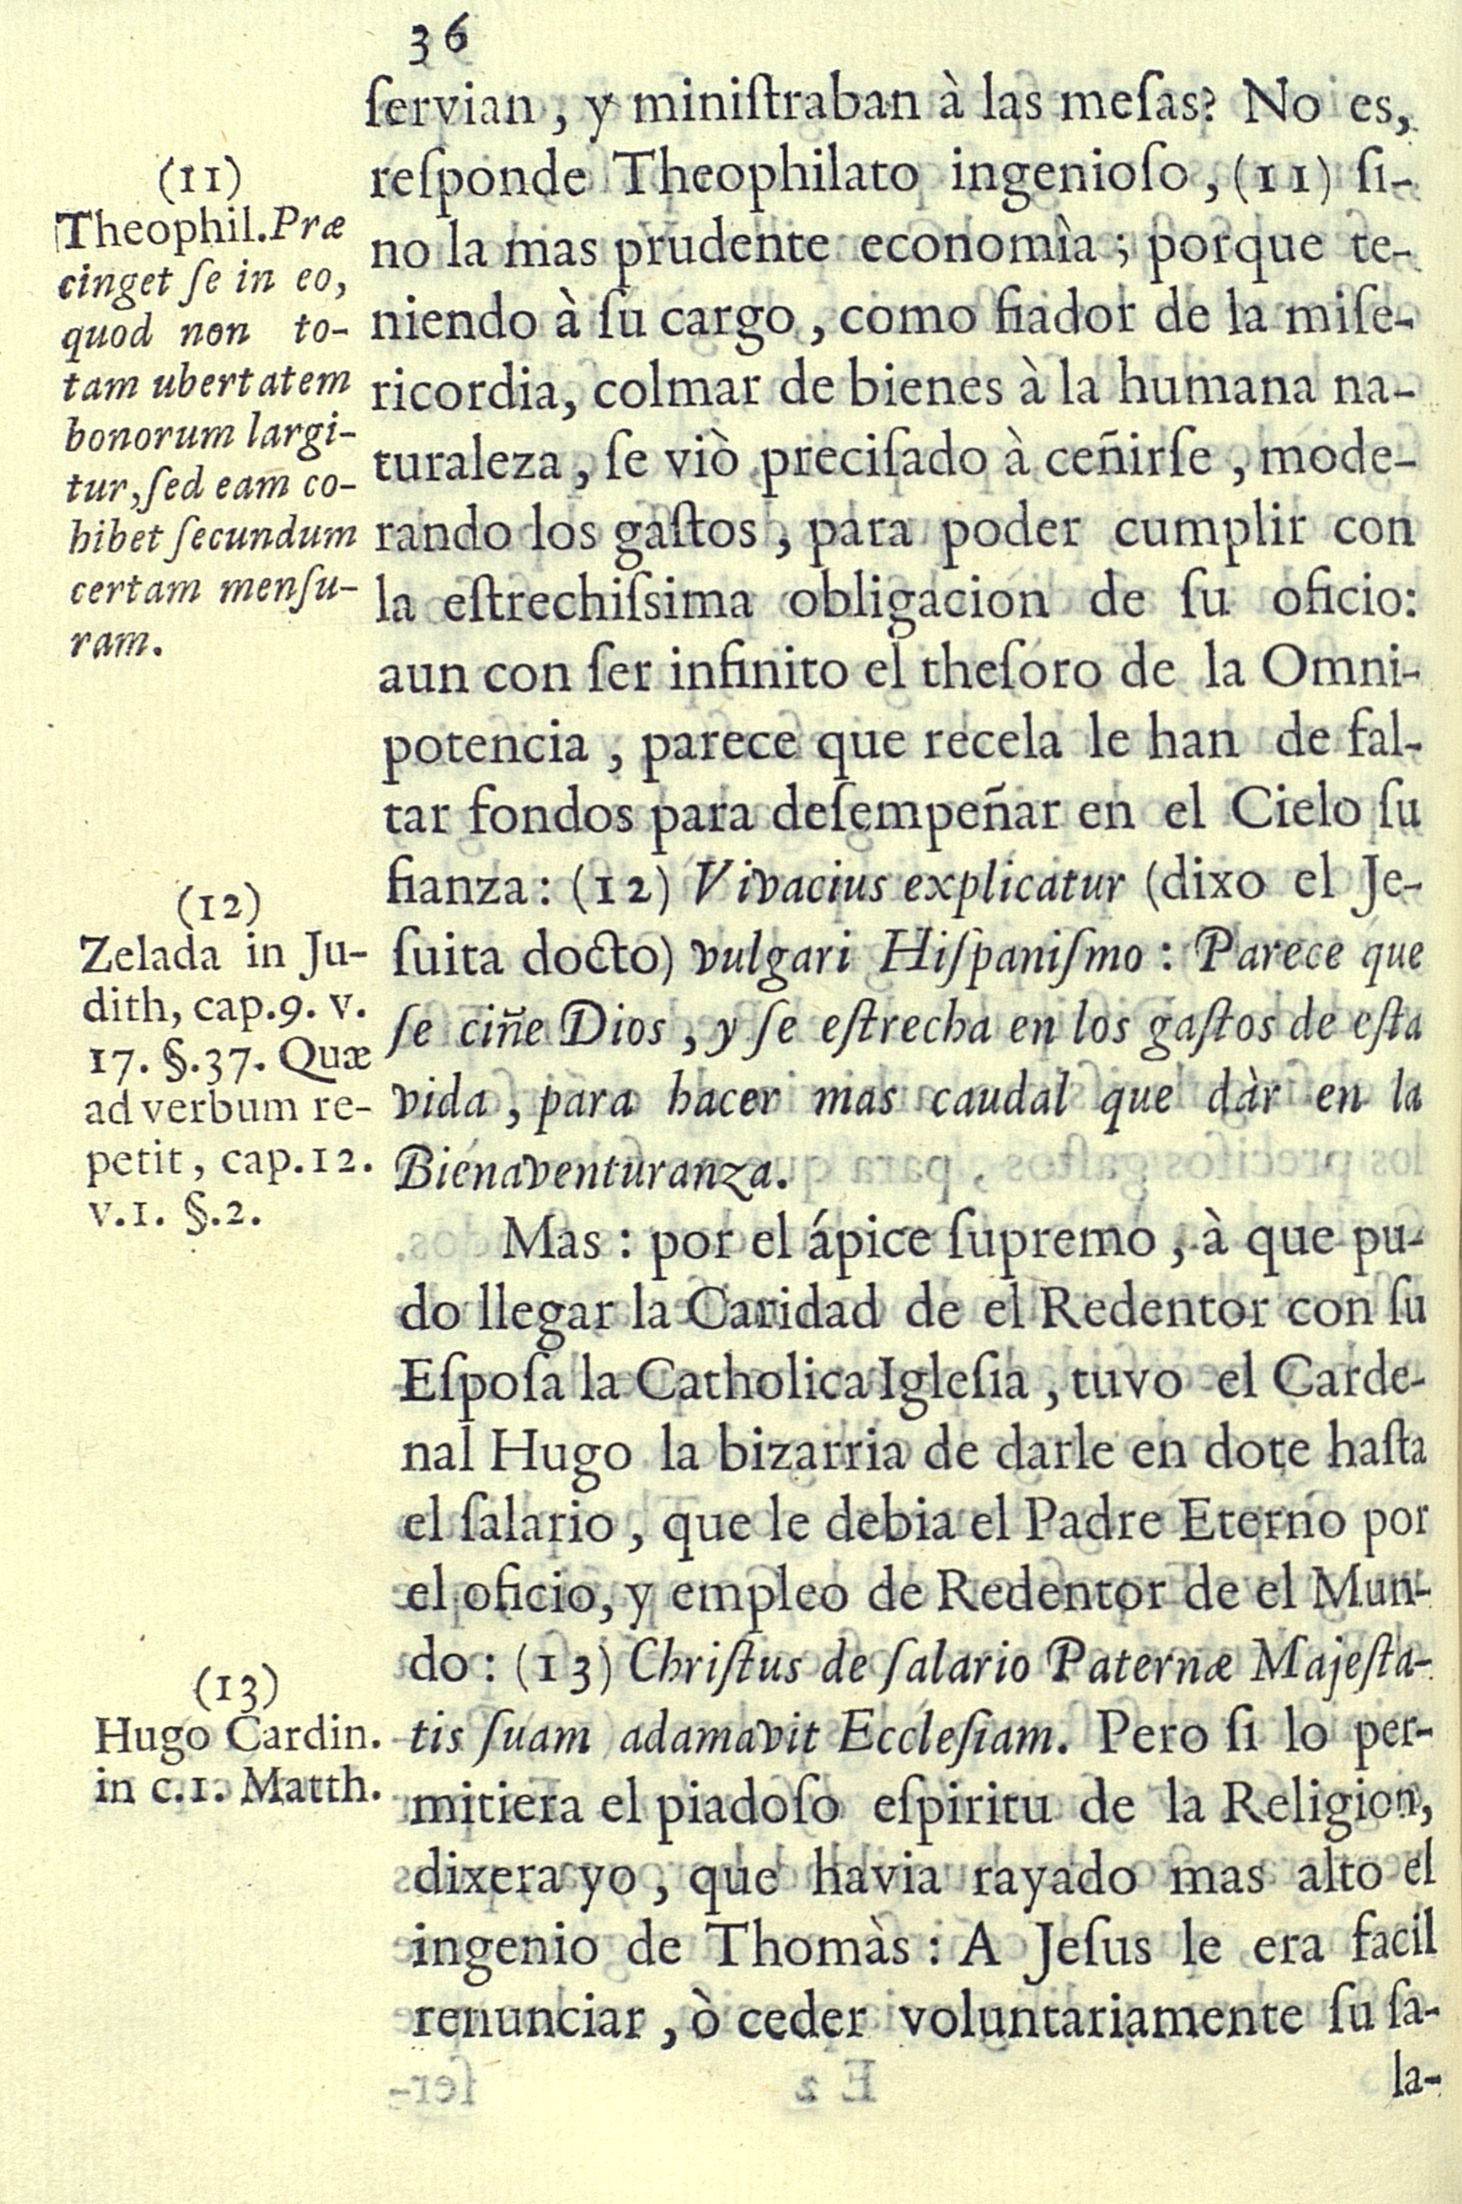 36
ſervian, y miniſtraban à las meſas? No es,
reſponde Theophilato ingenioſo, (11) ſi-
no la mas prudente economìa; porque te-
niendo à ſu cargo, como fiador de la miſe-
ricordia, colmar de bienes à la humana na-
turaleza, ſe viò preciſado à ceñirſe, mode-
rando los gaſtos, para poder cumplir con
la eſtrechiſsima obligacion de ſu oficio:
aun con ſer infinito el theſoro de la Omni-
potencia, parece que recela le han de fal-
tar fondos para deſempeñar en el Cielo ſu
fianza: (12) Vivacius explicatur (dixo el Je-
ſuita docto) vulgari Hiſpaniſmo: Parece que
ſe ciñe Dios, y ſe eſtrecha en los gaſtos de eſta
vida, para hacer mas caudal que dàr en la
Bienaventuranza.
Mas: por el ápice ſupremo, à que pu-
do llegar la Caridad de el Redentor con ſu
Eſpoſa la Catholica Igleſia, tuvo el Carde-
nal Hugo la bizarria de darle en dote haſta
el ſalario, que le debia el Padre Eterno por
el oficio, y empleo de Redentor de el Mun-
do: (13) Chriſtus de ſalario Paternæ Majeſta-
tis ſuam adamavit Eccleſiam. Pero ſi lo per-
mitiera el piadoſo eſpiritu de la Religion,
dixera yo, que havia rayado mas alto el
ingenio de Thomàs: A Jeſus le era facil
renunciar, ò ceder voluntariamente ſu ſa-
la-
(11)
Theophil. Præ
cinget ſe in eo,
quod non to-
tam ubertatem
bonorum largi-
tur, ſed eam co-
hibet ſecundum
certam menſu-
ram.
(12)
Zelada in Ju-
dith, cap.9. v.
17. §.37. Quæ
ad verbum re-
petit, cap.12.
v.1. §.2.
(13)
Hugo Cardin.
in c.1. Matth.